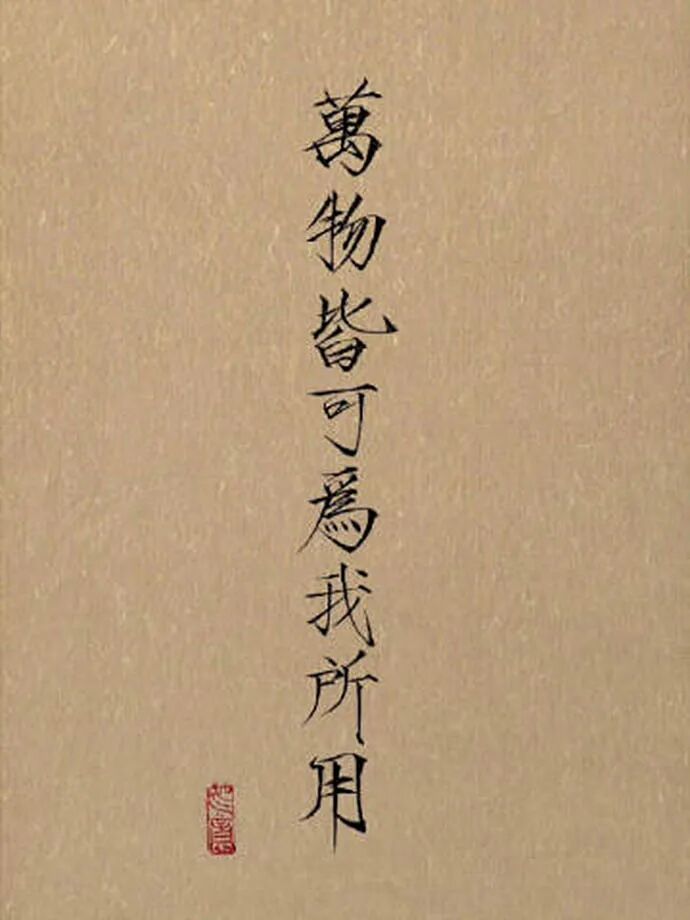 萬物皆可爲我所用